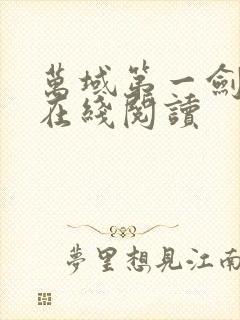 萬域第一劍
在綫閱讀
夢里想見江南